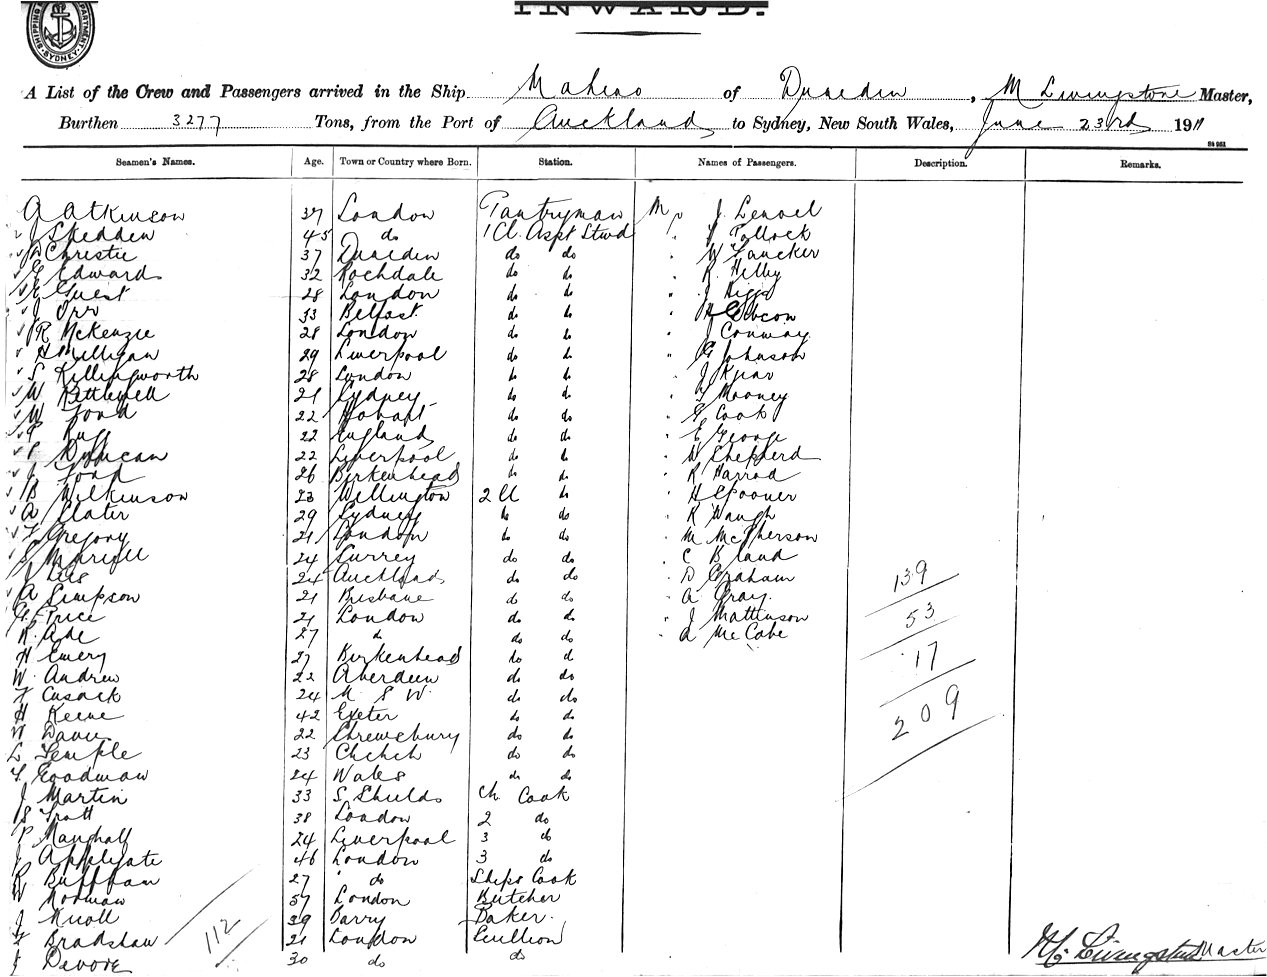 SHIPPING DEPARTMENT. SYDNEY
INWARD.
A List of the Crew and Passengers arrived in the Ship Maheno of Dunedin, M Livingstone Master,
Burthen 3277 Tons, from the Port of Auckland to Sydney, New South Wales, June 23rd 1911
Seamen's Names. Age. Town or Country where Born. Station. Names of Passengers. Description. Remarks.
A Atkinson 37 London Pantryman Mr J. Lenoel
J Skedden 45 do 1 Cl. Asst Stwd " Pollock
Christie 37 Dunedin do do " W
E Edwards 32 Rochdale do do " R Hilby
E Guest 28 London do do " J Higgs
J Orr 33 Belfast do do " H Gibson
R McKenzie 28 London do do " J Conway
H Milligan 29 Liverpool do do " G Johnson
S Killingworth 28 London do do " J
W Kettlewell 21 Sydney do do " Mooney
W Ford 22 Hobart do do " G Cook
Ruff 22 England do do " E George
Duncan 22 Liverpool do do " W Shepherd
J Ford 26 Birkenhead do do " R Harrod
B Wilkinson 23 Wellington 2 Cl do " H Spooner
A Slater 29 Sydney do do " R Waugh
F Gregory 21 London do do " M McPherson
S 24 Surrey do do " C Bland
J 24 Auckland do do " D Graham 139
A Simpson 21 Brisbane do do " A Gray.
G Price 21 London do do " J Mattinson 53
R. Ade 27 do do do " A McCabe
H Emery 27 Birkenhead do do 17
W. Andrew 22 Aberdeen do do
F Cusack 24 N S W. do do
H Keene 42 Exeter do do 209
W Davies 22 Shrewsbury do do
L Temple 23 Chchch do do
F. Goodman 24 Wales do do
J Martin 33 S. Shields Ch. Cook
S Trott 38 London 2 do
P Marshall 24 Liverpool 3 do
J Applegate 46 London 3 do
R 27 do Ships Cook
W Norman 57 London Butcher
J Nicoll 39 Barry Baker.
F Bradshaw 21 London Scullion
J Devore 30 do do
112
M. Livingstone Master